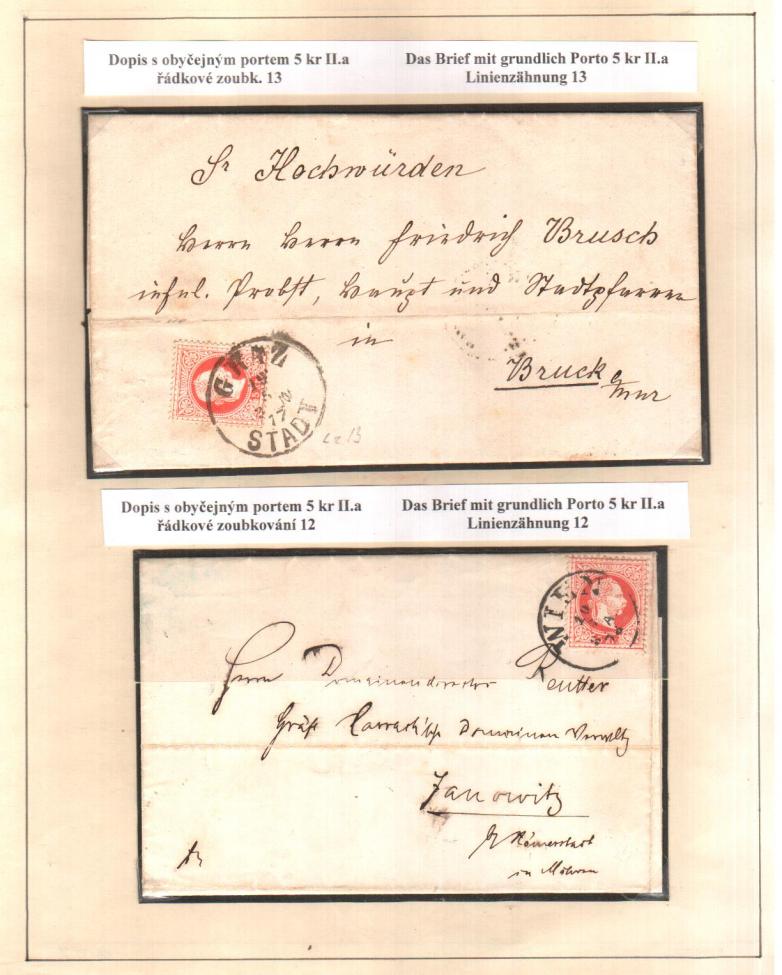 Dopis s obyčejným portem 5 kr II.a
řádkové zoubk. 13
Das Brief mit grundlich Porto 5 kr II.a
Linienzähnung 13
Sr Hochwürden
Herrn Herrn Friedrich Brusch
inful. Probst, Haupt und Stadtpfarrer
in
Bruck a/mur
GRAZ
STADT
Lz 13
Dopis s obyčejným portem 5 kr II.a
řádkové zoubkování 12
Das Brief mit grundlich Porto 5 kr II.a
Linienzähnung 12
WIEN
Herrn Domainendirector Reutter
Gräfl Harrach'sche Domainen Verwltg
Janowitz
Römerstadt
in Mähren